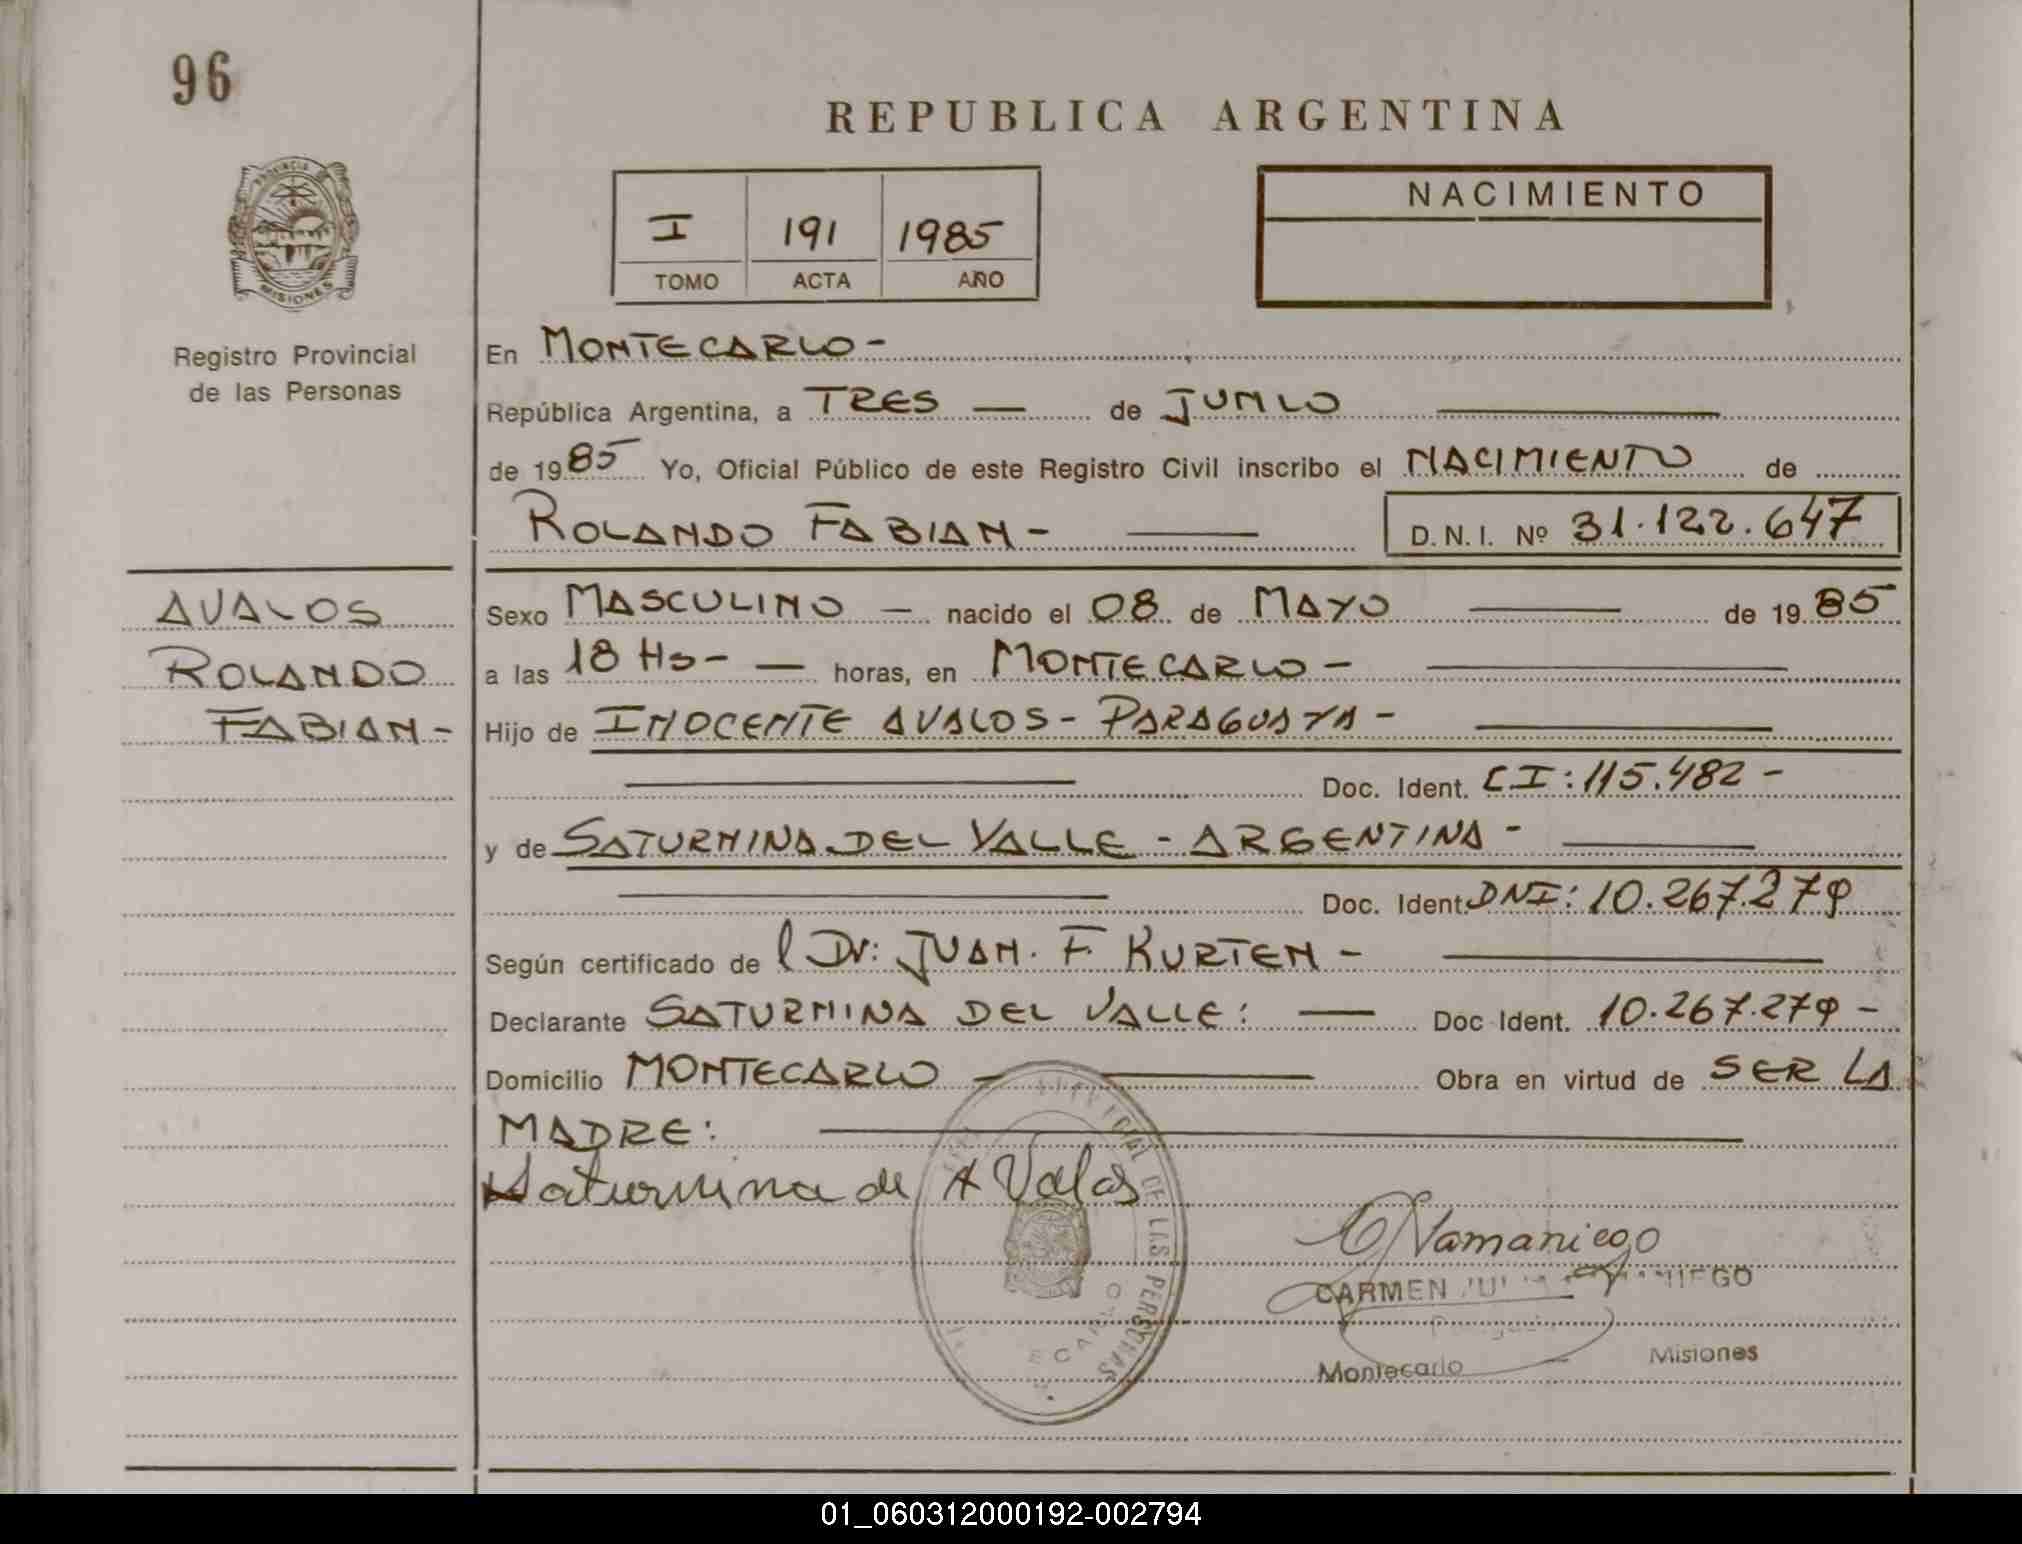 96
REPUBLICA ARGENTINA
PROVINCIA DE
MISIONES
Registro Provincial
de las Personas
I 191 1985
TOMO ACTA AÑO
NACIMIENTO
En MONTECARLO-
República Argentina, a TRES — de JUNIO
de 1985 Yo, Oficial Público de este Registro Civil inscribo el NACIMIENTO de
ROLANDO FABIAN- D.N.I. Nº 31.122.647
AVALOS
ROLANDO
FABIAN-
Sexo MASCULINO — nacido el 08 de MAYO de 1985
a las 18 Hs- — horas, en MONTECARLO-
Hijo de INOCENTE AVALOS- PARAGUAYA-
Doc. Ident. C.I: 115.482-
y de SATURNINA DEL VALLE - ARGENTINA-
Doc. Ident. DNI: 10.267.279
Según certificado de l Dr: JUAN. F. KURTEN-
Declarante SATURNINA DEL VALLE: — Doc Ident. 10.267.279-
Domicilio MONTECARLO — Obra en virtud de SER LA
MADRE:
Saturnina de AValos
DE LAS PERSONAS
CARMEN
Montecarlo Misiones
01_060312000192-002794